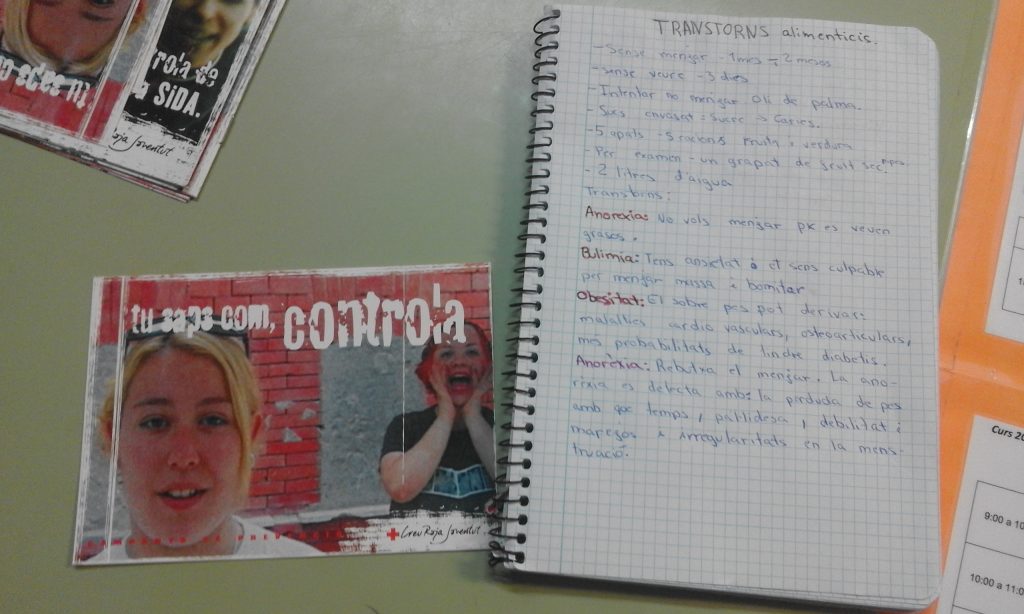 rola de
a SIDA.
Roja Joventut
tu saps com, controla
CAMPANYA DE PREVENCIÓ
CreuRoja Joventut
TRANSTORNS alimenticis.
- Sense menjar - 1 mes - 2 mesos
- Sense veure - 3 dies
- Intentar no menjar Oli de palma.
- Sucs envasat = Sucre -> Caries.
- 5 apats - 5 racions fruita i verdura
- Per examen - un grapat de fruit sec. pipes
- 2 litres d'aigua
Transtorns:
Anorexia: No vols menjar px es veuen
grasos.
Bulimia: Tens ansietat i et sens culpable
per menjar massa i bomitar.
Obesitat: El sobre pes pot derivar:
malalties cardio vasculars, osteoarticulars,
mes probabilitats de tindre diabetis.
Anorèxia: Rebutxa el menjar. La ano-
rèxia es detecta amb: la pèrduda de pes
amb poc temps, pal·lidesa, debilitat i
marejos i irregularitats en la mens-
truació.
Curs 20
9:00 a 10
10:00 a 11:0